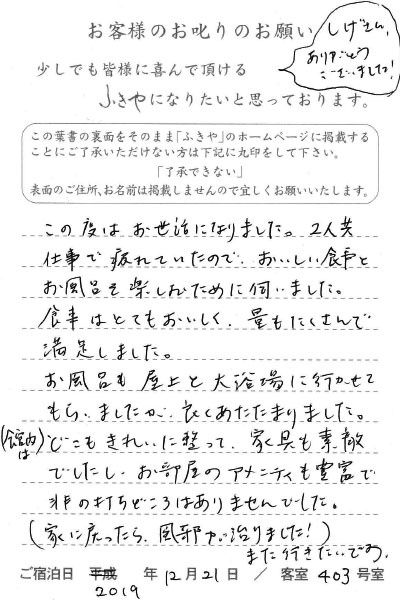 お客様のお叱りのお願い
しげさん、
ありがとう
ございました!
少しでも皆様に喜んで頂ける
ふきやになりたいと思っております。
この葉書の裏面をそのまま「ふきや」のホームページに掲載する
ことにご了承いただけない方は下記に丸印をして下さい。
「了承できない」
表面のご住所、お名前は掲載しませんので宜しくお願いいたします。
この度はお世話になりました。2人共
仕事で疲れていたので、おいしい食事と
お風呂を楽しむために伺いました。
食事はとてもおいしく、量もたくさんで
満足しました。
お風呂も屋上と大浴場に行かせて
もらいましたが、良くあたたまりました。
(館内は)どこもきれいに整って、家具も素敵
でしたし、お部屋のアメニティも豊富で
非の打ちどころはありませんでした。
(家に戻ったら、風邪が治りました!)
また行きたいです。
ご宿泊日 平成 2019 年 12月21日 / 客室 403号室